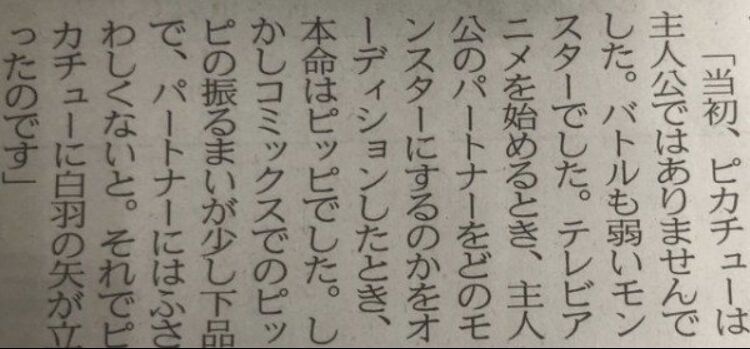 「当初、ピカチューは
主人公ではありませんで
した。バトルも弱いモン
スターでした。テレビア
ニメを始めるとき、主人
公のパートナーをどのモ
ンスターにするのかをオ
ーディションしたとき、
本命はピッピでした。し
かしコミックスでのピッ
ピの振るまいが少し下品
で、パートナーにはふさ
わしくないと。それでピ
カチューに白羽の矢が立
ったのです」